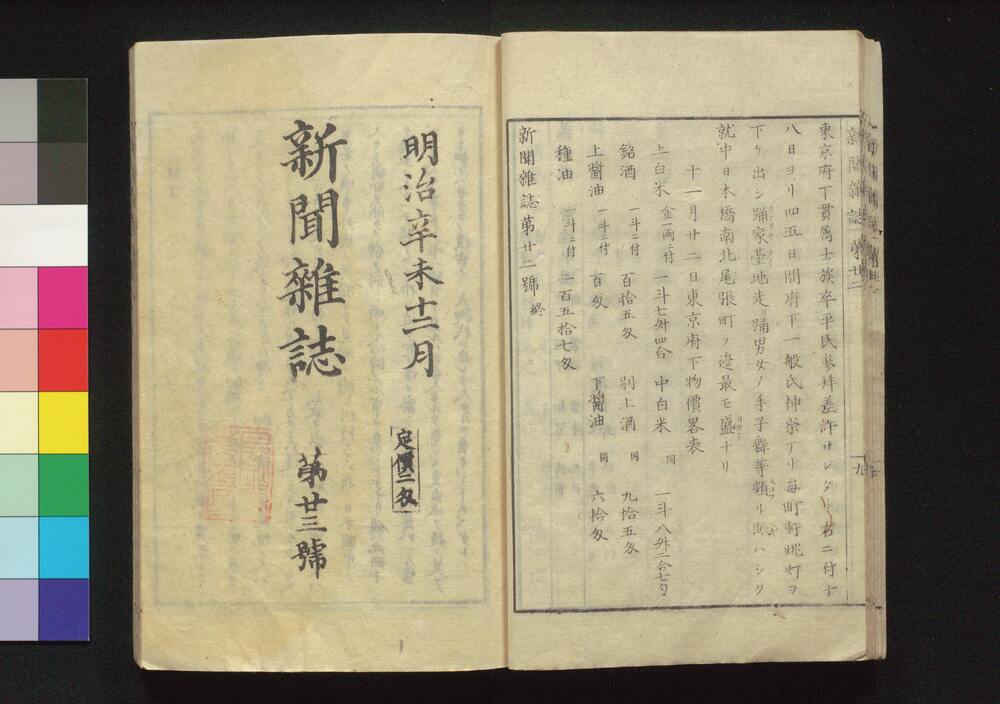 東京府下貫属士族卒平民參拜差許サレタリ右ニ付十
八日ヨリ四五日間府下一般氏神祭アリ毎町軒挑灯ヲ
下ケ出シ踊家臺地走リ踊男女ノ手子舞等頗ル賑ハシク
就中日本橋南北尾張町ノ邉最モ盛ナリ
十一月廿二日東京府下物價畧表
上白米 金一両ニ付 一斗七舛四合 中白米 同 一斗八舛二合七勺
銘酒 一斗ニ付 百拾五匁 別上酒 同 九拾五匁
上醬油 一斗ニ付 百匁 下醬油 同 六拾匁
種油 一斗ニ付 二百五拾七匁
新聞雜誌第廿二號終
新聞雜誌 第廿二
九
明治辛未十二月
定價二匁
新聞雜誌 第廿三號